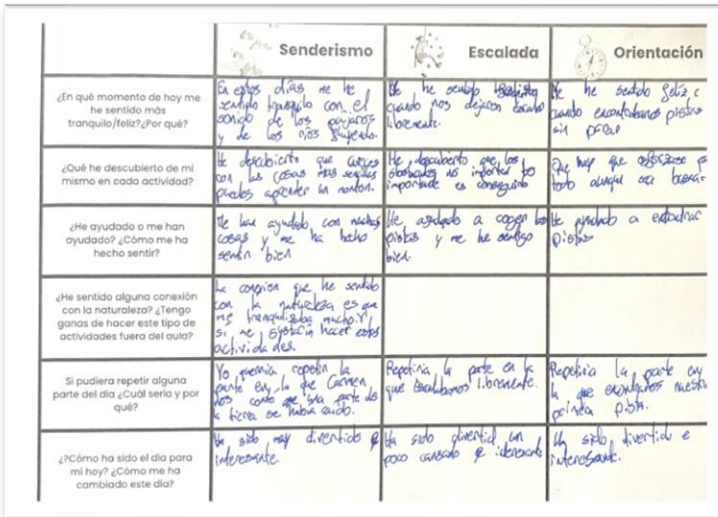 Senderismo
Escalada
Orientación
¿En qué momento de hoy me
he sentido más
tranquilo/feliz?¿Por qué?
En estos días me he
sentido tranquilo con el
sonido de los pajaros
y de los rios
he sentido
cuando nos dejaron escalar
libremente.
Me he sentido feliz
cuando encontrabamos pistas
sin parar
¿Qué he descubierto de mi
mismo en cada actividad?
He descubierto que
con las cosas mas
puedes aprender un monton.
He descubierto que los
obstaculos no importan lo
importante es conseguirlo
Que hay que esforzarse
todo aunque sea buscar
¿He ayudado o me han
ayudado? ¿Cómo me ha
hecho sentir?
Me han ayudado con muchas
cosas y me ha hecho
sentir bien
He ayudado a coger las
pistas y me he sentido
bien.
He ayudado a encontrar
pistas
¿He sentido alguna conexión
con la naturaleza? ¿Tengo
ganas de hacer este tipo de
actividades fuera del aula?
La que he sentido
con la naturaleza es que
me mucho y
si me hacer estas
actividades.
Si pudiera repetir alguna
parte del día ¿Cuál sería y por
qué?
Yo repetir la
parte en la que Carmen
nos conto que una parte de
la tierra se habia caido.
Repetiria la parte en la
que escalabamos libremente.
Repetiria la parte en
la que nuestra
primera pista.
¿?Cómo ha sido el día para
mi hoy? ¿Cómo me ha
cambiado este día?
Ha sido muy divertido e
interesante.
Ha sido un
poco cansado e
Ha sido divertido e
interesante.